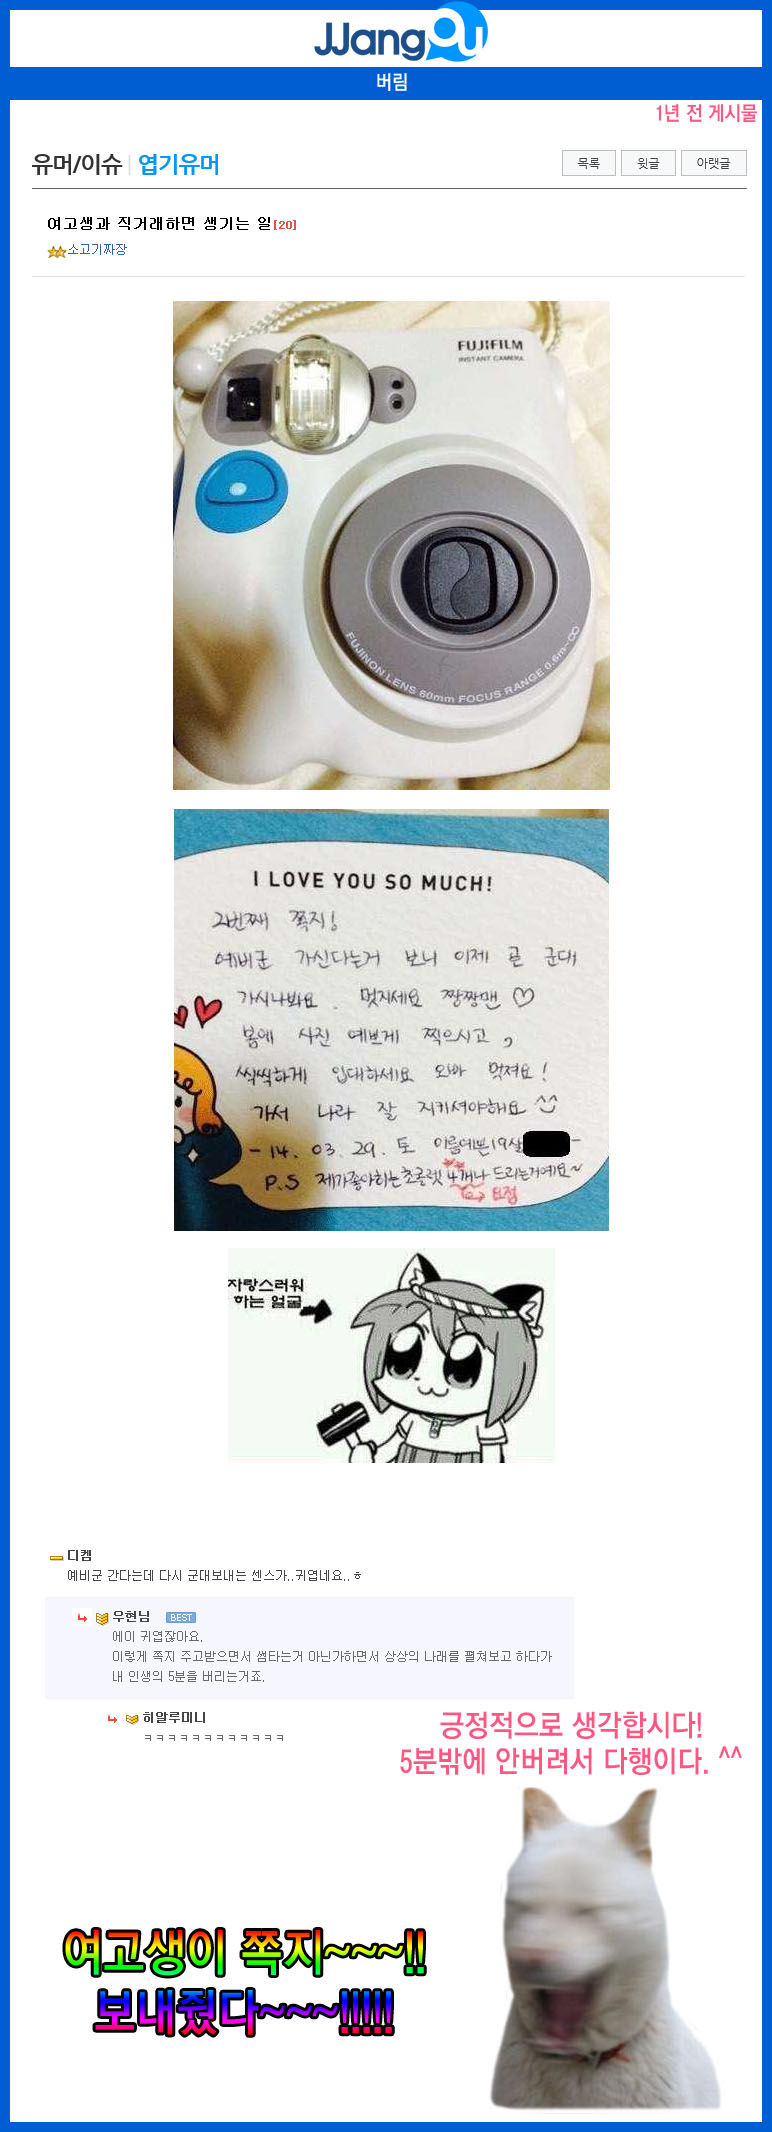 JJang0u
버림
1년 전 게시물
유머/이슈 | 엽기유머
목록 윗글 아랫글
여고생과 직거래하면 생기는 일[20]
소고기짜장
FUJIFILM
INSTANT CAMERA
FUJINON LENS 60mm FOCUS RANGE 0.6m~∞
I LOVE YOU SO MUCH!
2번째 쪽지!
예비군 가신다는거 보니 이제 곧 군대
가시나봐요. 멋지세요 짱짱맨 ♡
봄에 사진 예쁘게 찍으시고,
씩씩하게 입대하세요 오빠 멋져요!
가서 나라 잘 지키셔야해요 ^^
- 14. 03. 29. 토 이름예쁜19살 -
P.S 제가좋아하는초콜렛 4개나 드리는거예요~
요점
자랑스러워
하는 얼굴
디켐
예비군 간다는데 다시 군대보내는 센스가..귀엽네요..ㅎ
우현님 BEST
에이 귀엽잖아요.
이렇게 쪽지 주고받으면서 썸타는거 아닌가하면서 상상의 나래를 펼쳐보고 하다가
내 인생의 5분을 버리는거죠.
히알루미니
ㅋㅋㅋㅋㅋㅋㅋㅋㅋㅋㅋㅋ
긍정적으로 생각합시다!
5분밖에 안버려서 다행이다. ^^
여고생이 쪽지~~~!!
보내줬다~~~!!!!!